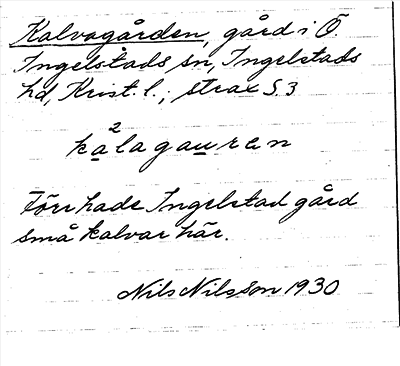 Kalvagården, gård i Ö.
Ingelstads sn, Ingelstads
hd, Krist. l.; strax S. 3
ka²lagauren
Förr hade Ingelstad gård
små kalvar här.
Nils Nilsson 1930